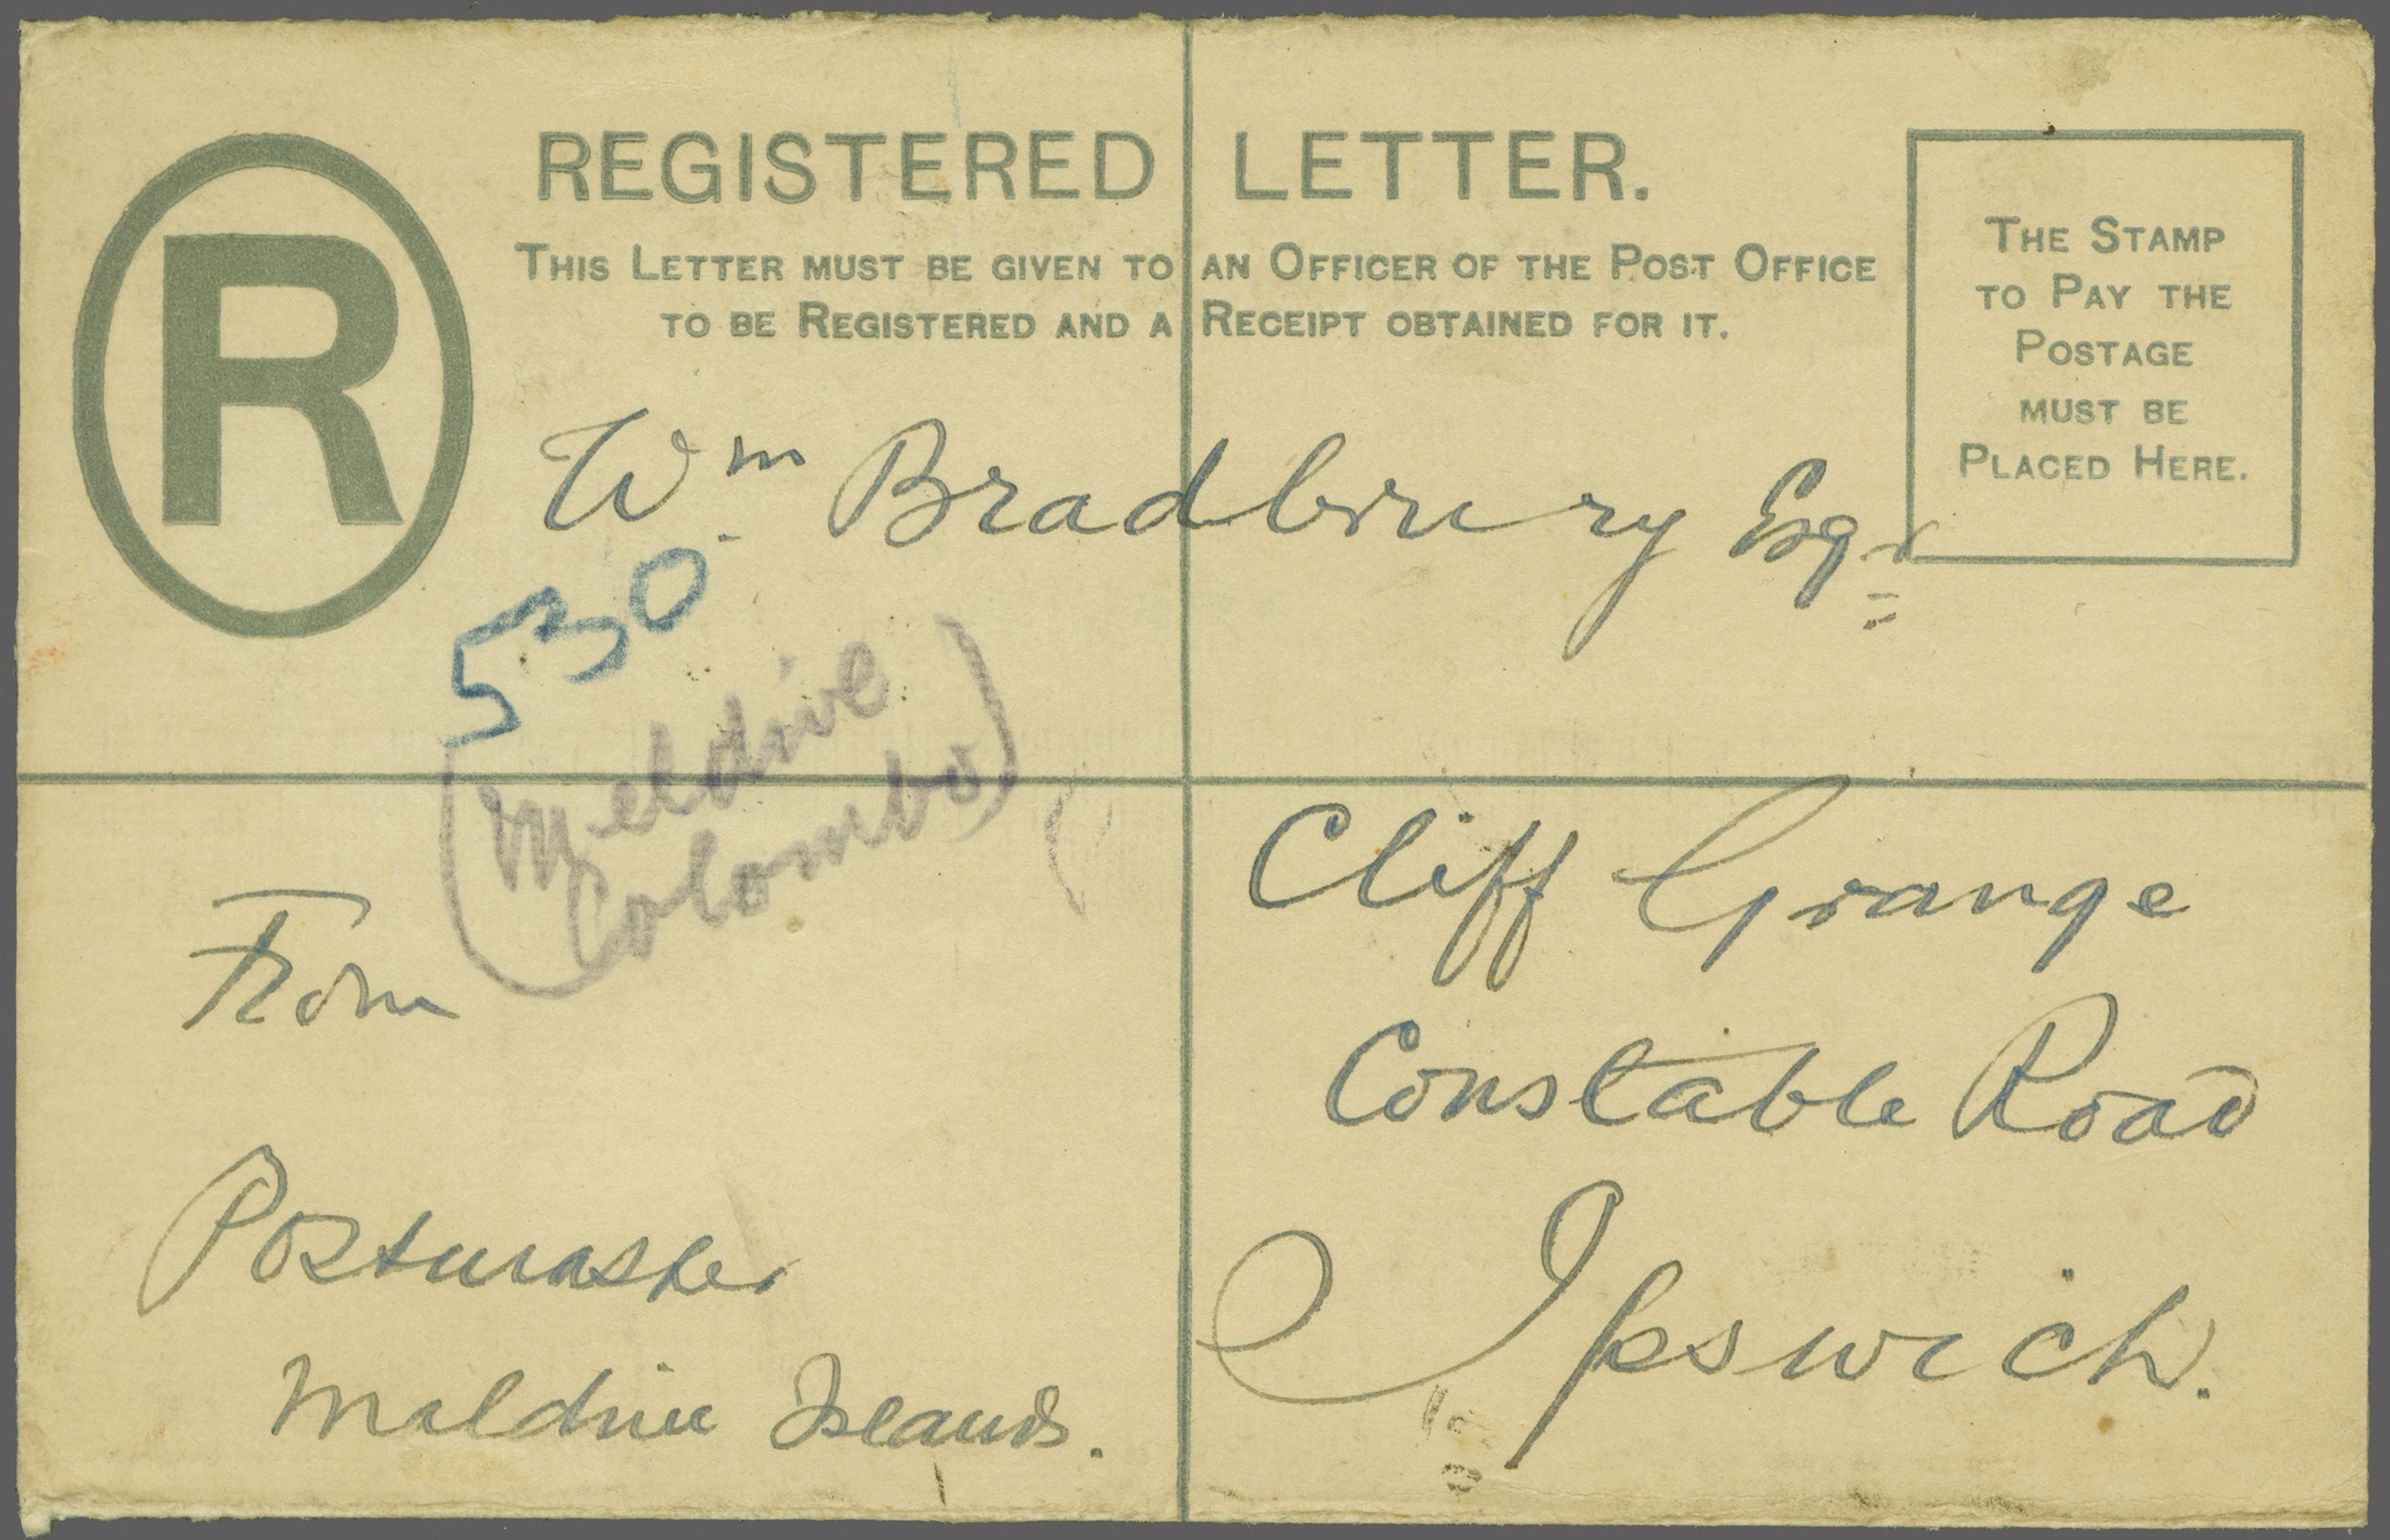 R
REGISTERED LETTER.
THIS LETTER MUST BE GIVEN TO AN OFFICER OF THE POST OFFICE
TO BE REGISTERED AND A RECEIPT OBTAINED FOR IT.
THE STAMP
TO PAY THE
POSTAGE
MUST BE
PLACED HERE.
Wm. Bradbury Esqr
530
(Meldive
Colombo)
Cliff Grange
Constable Road
Ipswich.
From
Postmaster
Maldive Islands.